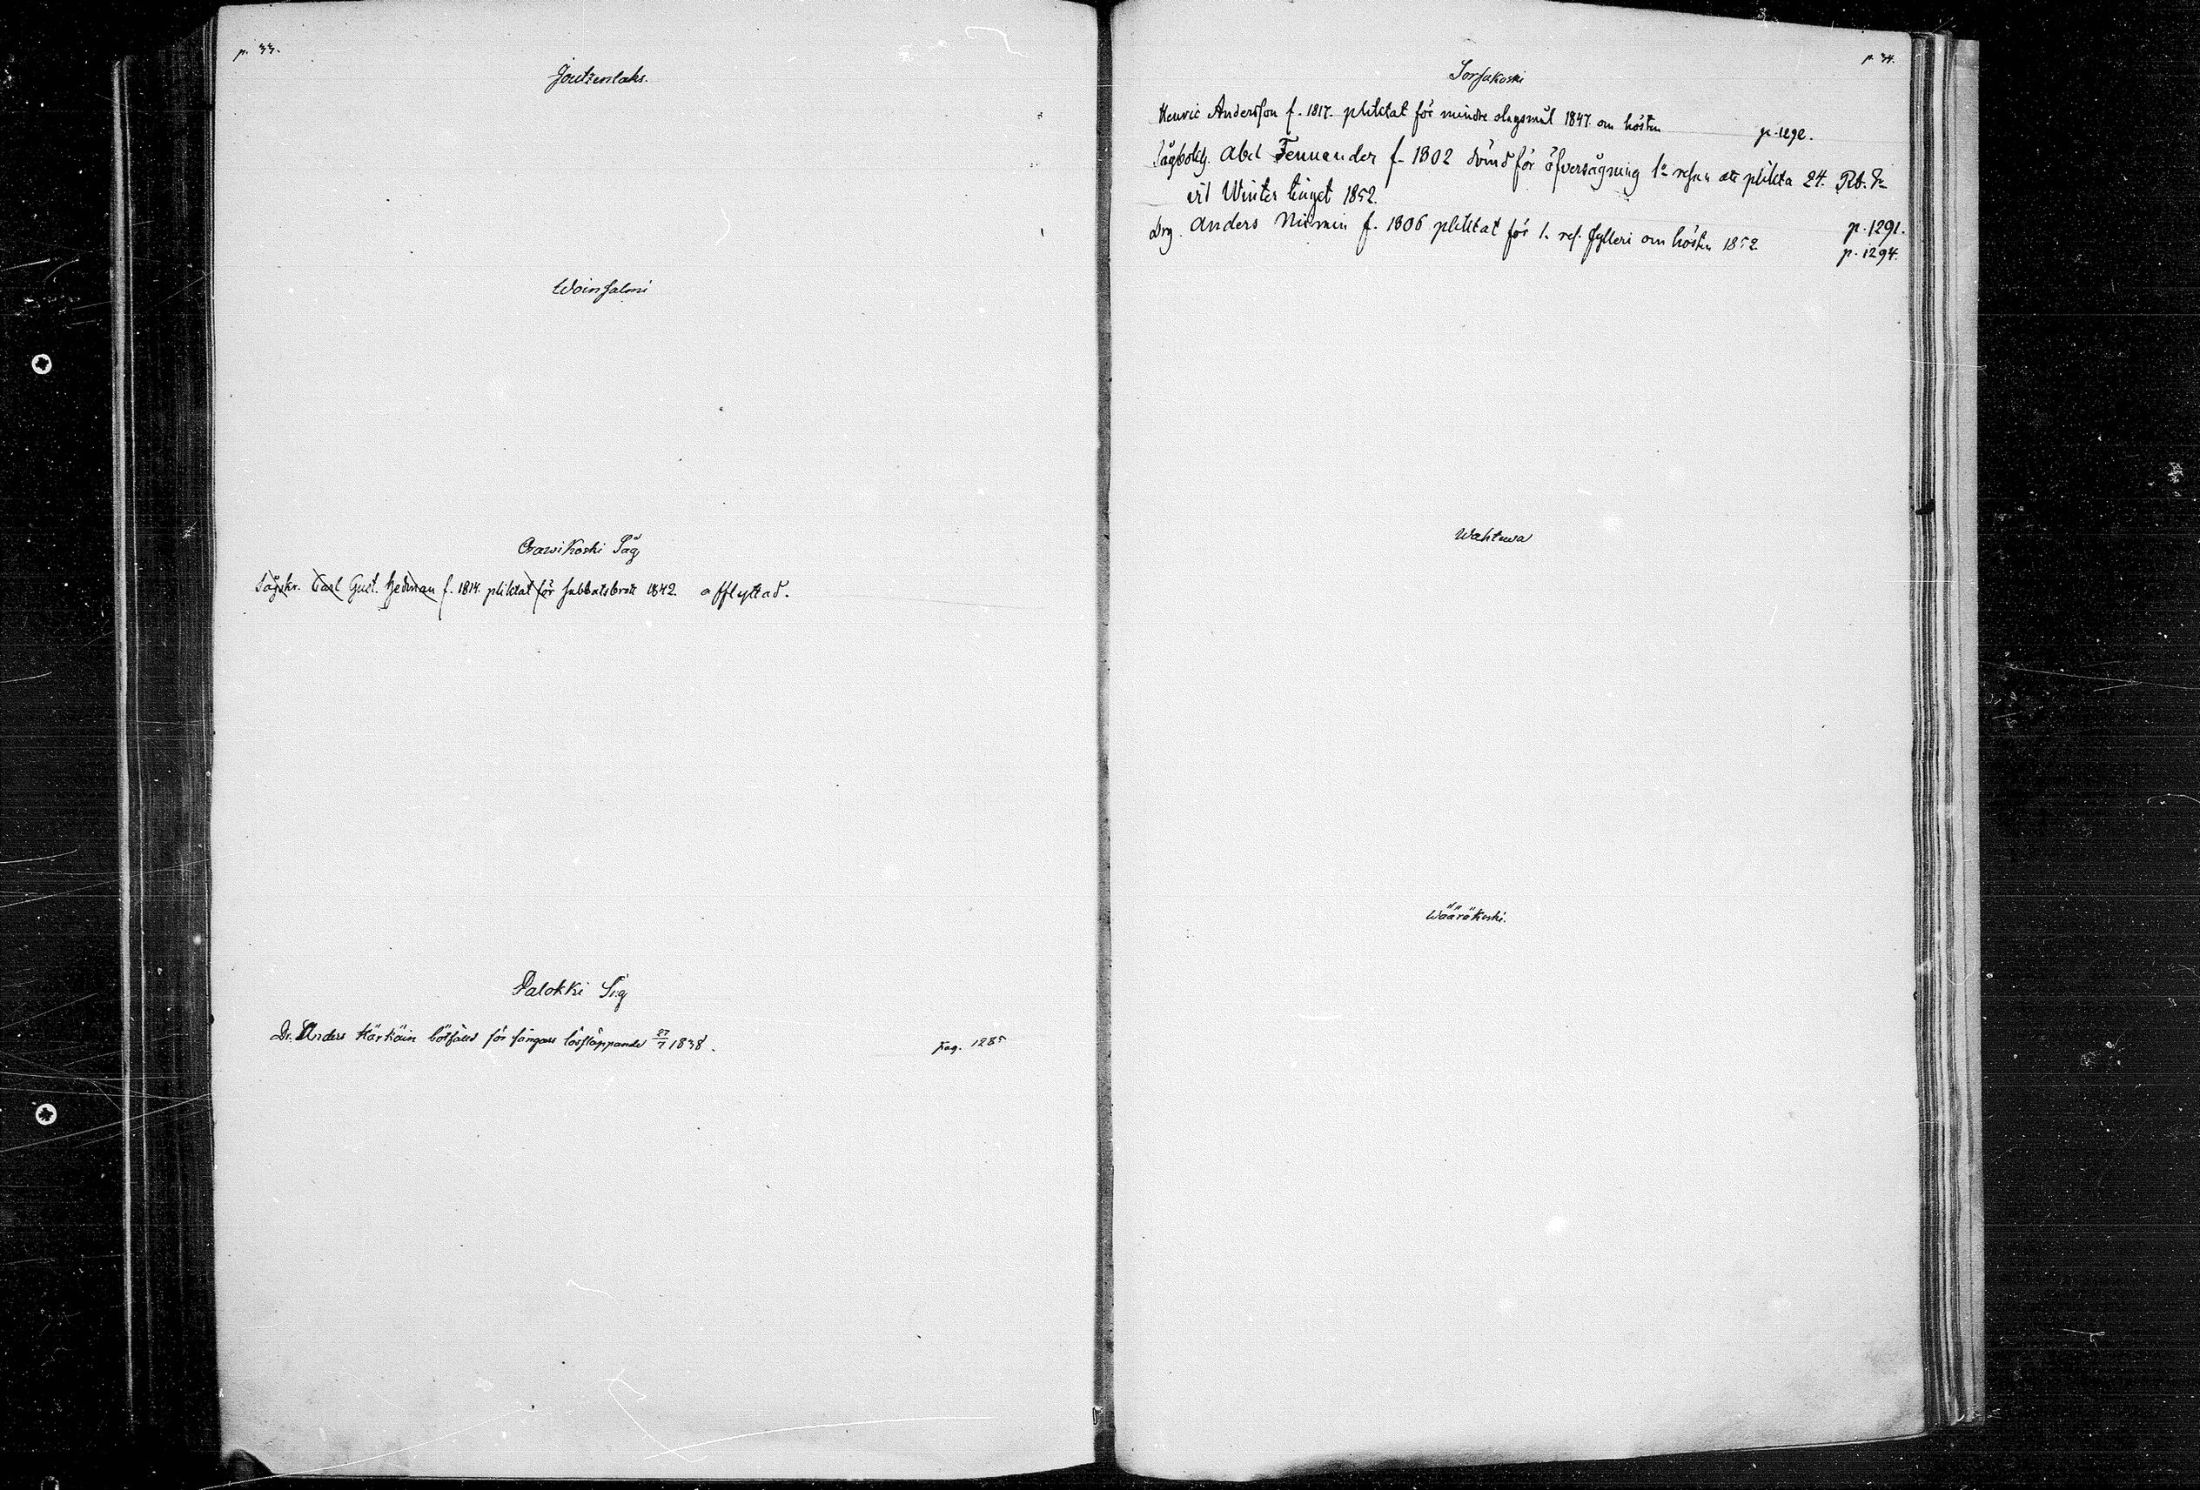 p. 33.
Joutzenlaks.
Woinsalmi
Orawikoski Såg
Sågskr. Carl Gust. Hedman f. 1814. pliktat för sabbatsbrott 1842. afflyttad.
Palokki Såg
Dr. Anders Härköin bötfäld för fångars lössläppande 27/7 1838. pag. 1285
p. 34.
Sorsakoski
Henric Andersson f. 1817. pliktat för mindre olagsmål 1847 om hösten p. 1292.
Abel Fennander f. 1802 dömd för öfversågning 1a resan att plikta 24. Rb. Sr
vid Winter tinget 1852. p. 1291.
Drg. Anders Niiranen f. 1806 pliktat för 1. res. fylleri om hösten 1852 p. 1294.
Wahtuva
Wääräkoski.